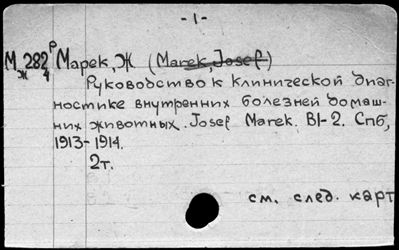 - 1 -
М 282 Р Марек, Ж (Marek, Josef)
ж 4
Руководство к клинической диаг-
ностике внутренних болезней домаш-
них животных. Josef Marek. В1-2. Спб,
1913-1914.
2т.
см. след. карт